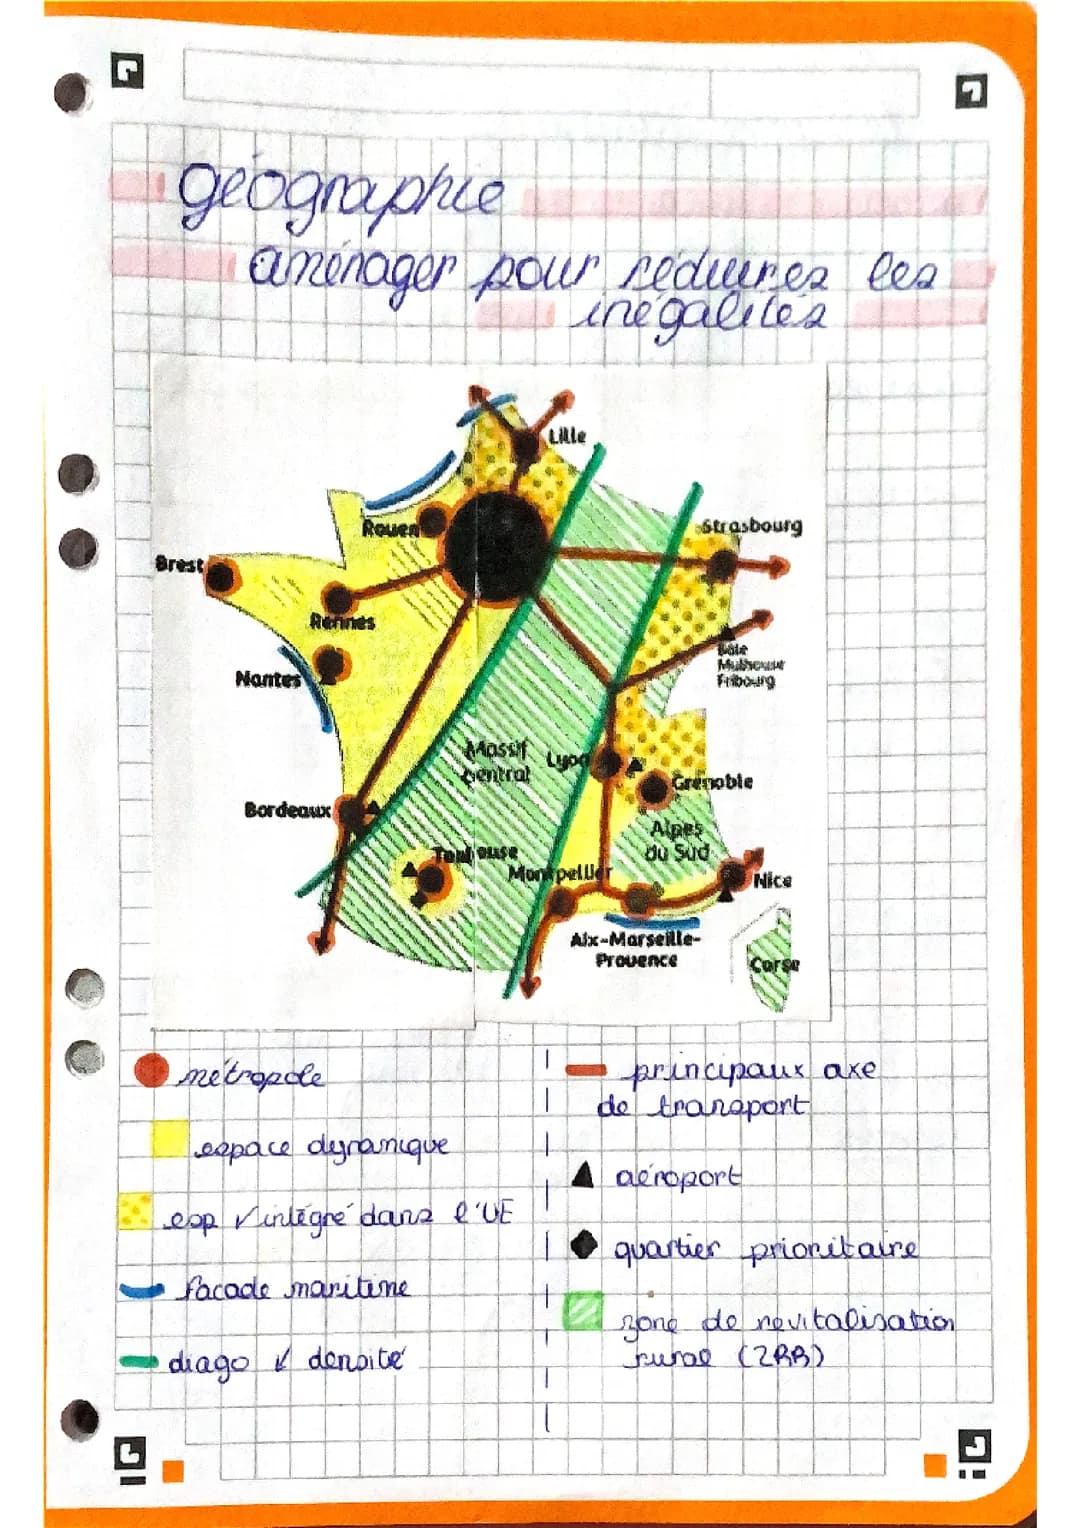 géographie
aménager pour réduires les
inégalités
Lille
Strasbourg
Rouen
Brest
Rennes
Bâle
Mulhouse
Fribourg
Nantes
Massif
Central
Lyon
Grenoble
Bordeaux
Alpes
du Sud
Toulouse
Montpellier
Nice
Aix-Marseille-
Provence
Corse
métropole
espace dynamique
esp √ intégré dans l'UE
facade maritime
diago ↙ densité
principaux axe
de transport
aéroport
quartier prioritaire
zone de revitalisation
rural (ZRR)